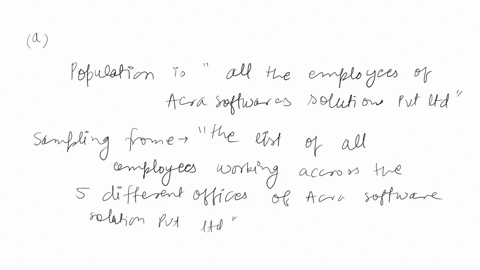 (a)
Population is " all the employees of
Acra softwares solution Pvt ltd"
Sampling frome → "the list of all
employees working accross the
5 different offices of Acra software
solution Pvt ltd"